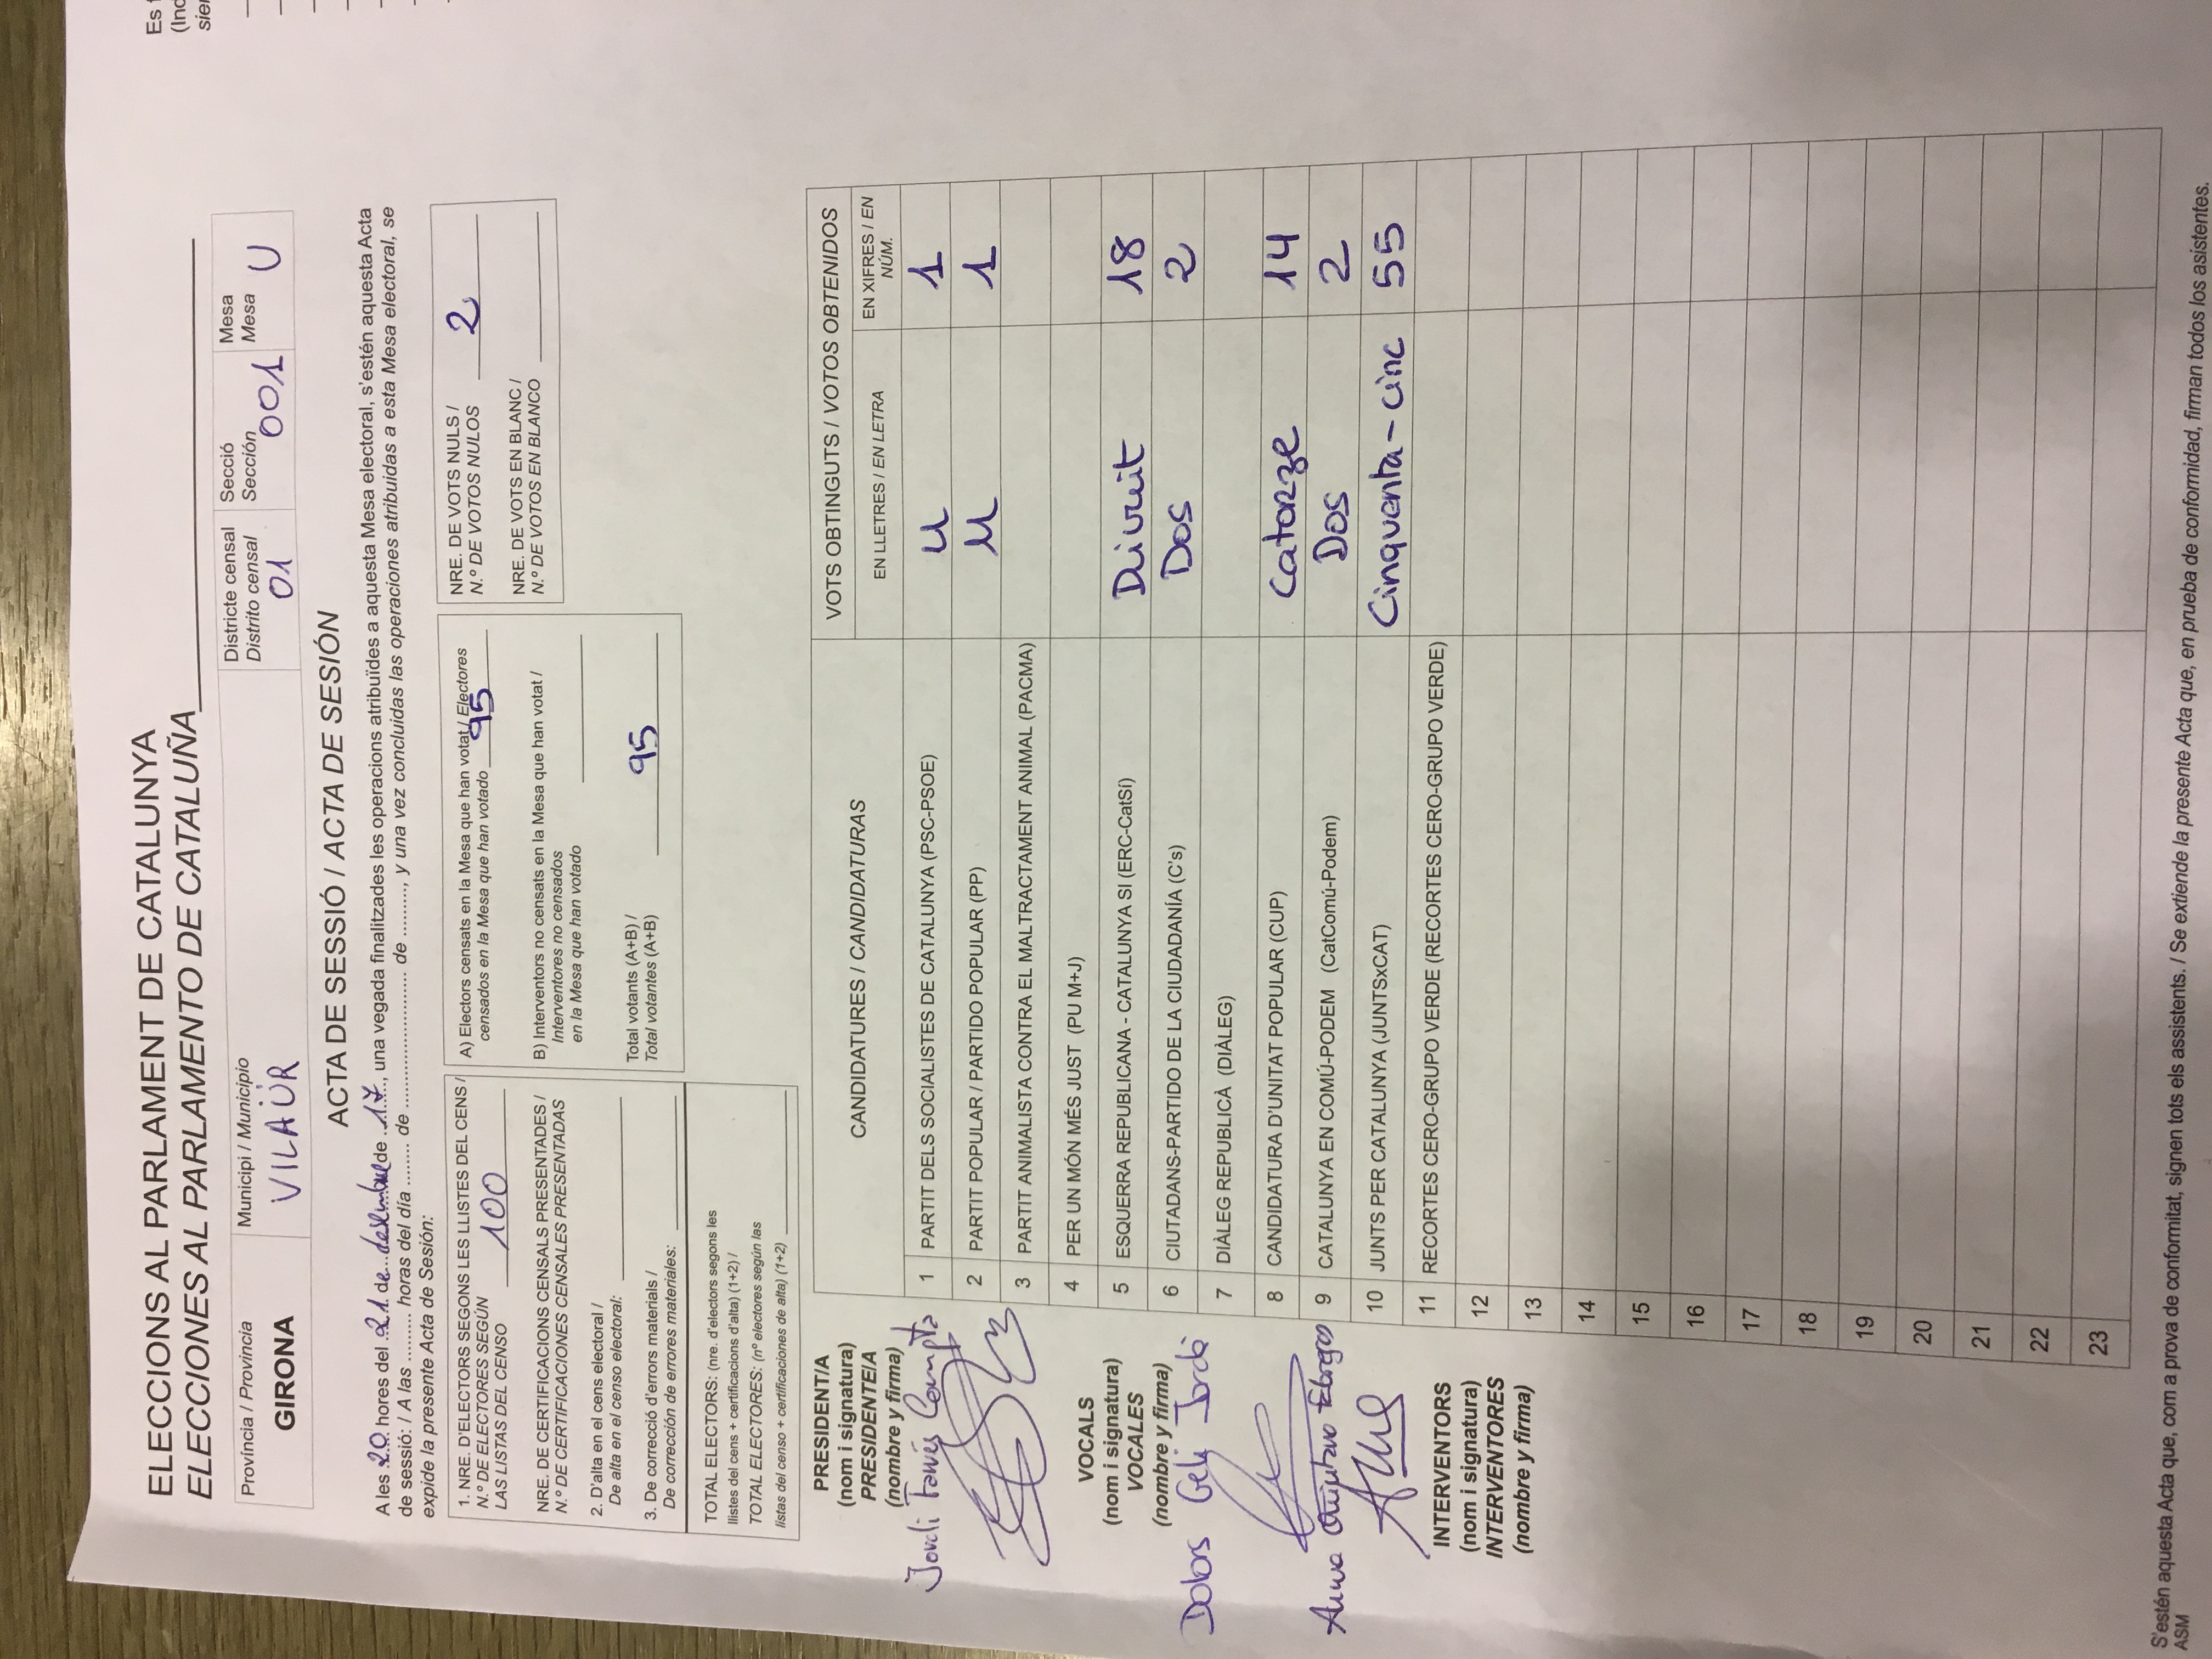 ELECCIONS AL PARLAMENT DE CATALUNYA
ELECCIONES AL PARLAMENTO DE CATALUÑA
Província / Provincia
GIRONA
Municipi / Municipio
VILAÜR
Districte censal
Distrito censal
01
Secció
Sección
001
Mesa
Mesa
U
ACTA DE SESSIÓ / ACTA DE SESIÓN
A les 20 hores del 21 de desembre de 17, una vegada finalitzades les operacions atribuïdes a aquesta Mesa electoral, s'estén aquesta Acta
de sessió: / A las ......... horas del día ........ de .......................... de ........., y una vez concluidas las operaciones atribuidas a esta Mesa electoral, se
expide la presente Acta de Sesión:
1. NRE. D'ELECTORS SEGONS LES LLISTES DEL CENS /
N.º DE ELECTORES SEGÚN
LAS LISTAS DEL CENSO 100
NRE. DE CERTIFICACIONS CENSALS PRESENTADES /
N.º DE CERTIFICACIONES CENSALES PRESENTADAS
2. D'alta en el cens electoral /
De alta en el censo electoral:
3. De correcció d'errors materials /
De corrección de errores materiales:
TOTAL ELECTORS: (nre. d'electors segons les
llistes del cens + certificacions d'alta) (1+2) /
TOTAL ELECTORES: (nº electores según las
listas del censo + certificaciones de alta) (1+2)
A) Electors censats en la Mesa que han votat / Electores
censados en la Mesa que han votado 95
B) Interventors no censats en la Mesa que han votat /
Interventores no censados
en la Mesa que han votado
Total votants (A+B) /
Total votantes (A+B) 95
NRE. DE VOTS NULS /
N.º DE VOTOS NULOS 2
NRE. DE VOTS EN BLANC /
N.º DE VOTOS EN BLANCO
Es
(Ind
sier
PRESIDENT/A
(nom i signatura)
PRESIDENTE/A
(nombre y firma)
Jordi Compta
VOCALS
(nom i signatura)
VOCALES
(nombre y firma)
Dolors Geli Jordà
Anna Quintana
INTERVENTORS
(nom i signatura)
INTERVENTORES
(nombre y firma)
CANDIDATURES / CANDIDATURAS
VOTS OBTINGUTS / VOTOS OBTENIDOS
EN LLETRES / EN LETRA
EN XIFRES / EN
NÚM.
1 PARTIT DELS SOCIALISTES DE CATALUNYA (PSC-PSOE) U 1
2 PARTIT POPULAR / PARTIDO POPULAR (PP) U 1
3 PARTIT ANIMALISTA CONTRA EL MALTRACTAMENT ANIMAL (PACMA)
4 PER UN MÓN MÉS JUST (PU M+J)
5 ESQUERRA REPUBLICANA - CATALUNYA SI (ERC-CatSí) Divuit 18
6 CIUTADANS-PARTIDO DE LA CIUDADANÍA (C's) Dos 2
7 DIÀLEG REPUBLICÀ (DIÀLEG)
8 CANDIDATURA D'UNITAT POPULAR (CUP) Catorze 14
9 CATALUNYA EN COMÚ-PODEM (CatComú-Podem) Dos 2
10 JUNTS PER CATALUNYA (JUNTSxCAT) Cinquenta-cinc 55
11 RECORTES CERO-GRUPO VERDE (RECORTES CERO-GRUPO VERDE)
12
13
14
15
16
17
18
19
20
21
22
23
S'estén aquesta Acta que, com a prova de conformitat, signen tots els assistents. / Se extiende la presente Acta que, en prueba de conformidad, firman todos los asistentes.
ASM